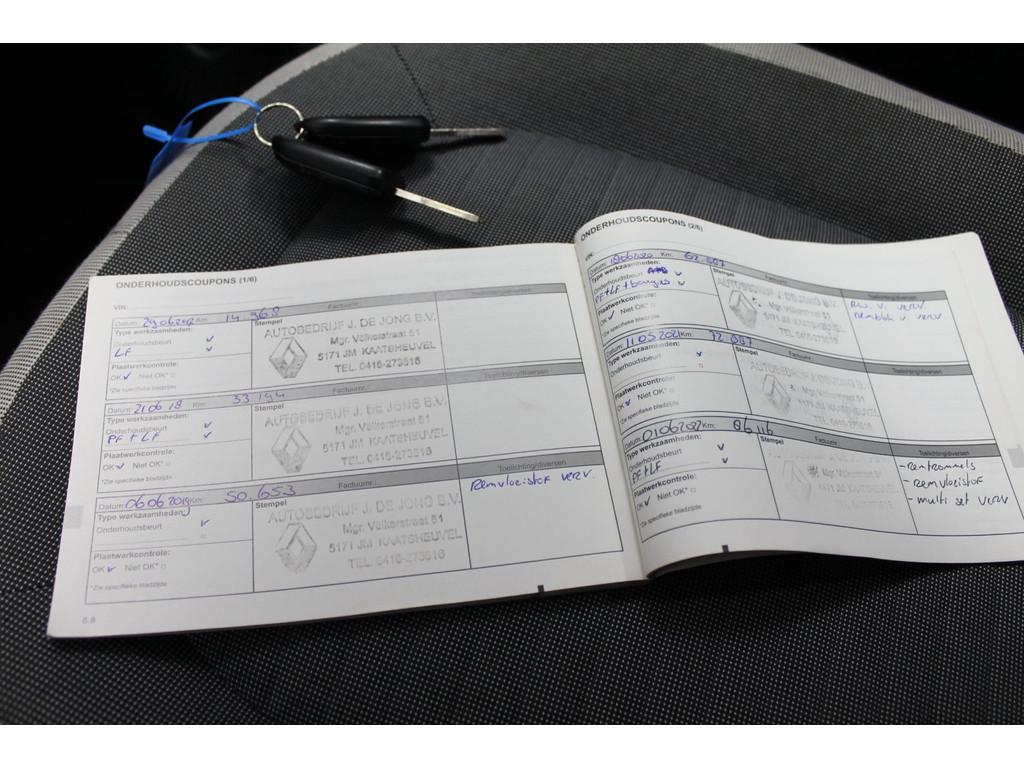 ONDERHOUDSCOUPONS (1/6)
VIN:
Datum: Km: 14.968 Factuurnr.:
Type werkzaamheden: Stempel
Onderhoudsbeurt
LF
Plaatwerkcontrole:
OK Niet OK*
*Zie specifieke bladzijde
AUTOBEDRIJF J. DE JONG B.V.
Mgr. Völkerstraat 51
5171 JM KAATSHEUVEL
TEL. 0416-273616
Datum: 21 06 18 Km: 33.194 Factuurnr.: Toelichting/diversen
Type werkzaamheden: Stempel
Onderhoudsbeurt
PF + LF
Plaatwerkcontrole:
OK Niet OK*
*Zie specifieke bladzijde
AUTOBEDRIJF J. DE JONG B.V.
Mgr. Völkerstraat 51
5171 JM KAATSHEUVEL
TEL. 0416-273616
Datum: 06 06 2019 Km: 50.653 Factuurnr.: Toelichting/diversen
Type werkzaamheden: Stempel
Onderhoudsbeurt
Plaatwerkcontrole:
OK Niet OK*
*Zie specifieke bladzijde
AUTOBEDRIJF J. DE JONG B.V.
Mgr. Völkerstraat 51
5171 JM KAATSHEUVEL
TEL. 0416-273616
Remvloeistof verv.
6.8
ONDERHOUDSCOUPONS (2/6)
VIN:
Datum: Km: Factuurnr.
Type werkzaamheden: Stempel
Onderhoudsbeurt
PF+LF+bougies
Plaatwerkcontrole:
OK Niet OK*
*Zie specifieke bladzijde
AUTOBEDRIJF J. DE JONG B.V.
Mgr. Völkerstraat 51
5171 JM KAATSHEUVEL
Datum: 11 05 2021 Km: Factuurnr. Toelichting/diversen
Type werkzaamheden: Stempel
Onderhoudsbeurt
Plaatwerkcontrole:
OK Niet OK*
*Zie specifieke bladzijde
AUTOBEDRIJF J. DE JONG B.V.
Mgr. Völkerstraat 51
5171 JM KAATSHEUVEL
Datum: Km: 86 116 Factuurnr. Toelichting/diversen
Type werkzaamheden: Stempel
Onderhoudsbeurt
PF+LF
Plaatwerkcontrole:
OK Niet OK*
*Zie specifieke bladzijde
Mgr. Völkerstraat 51
5171 JM KAATSHEUVEL
- Remtrommels
- Remvloeistof
- multi set verv